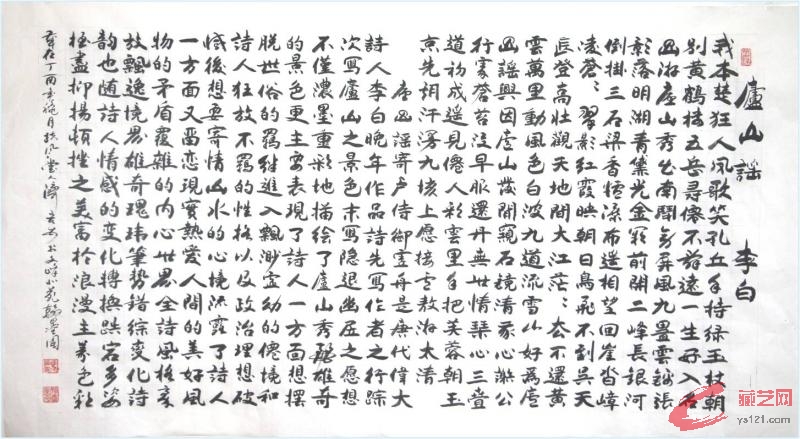 廬山謡 李白
我本楚狂人凤歌笑孔丘手持绿玉杖朝
别黄鹤楼五岳尋僊不辞遠一生好入名
山游庐山秀出南斗旁屏風九疊雲锦張
影落明湖青黛光金阙前開二峰長银河
倒掛三石梁香炉瀑布遥相望回崖沓嶂
凌蒼蒼翠影红霞映朝日鳥飛不到吴天
長登高壮觀天地間大江茫茫去不還黄
雲萬里動風色白波九道流雪山好爲庐
山謡興因庐山發閒窺石镜清我心謝公
行處蒼苔没早服還丹無世情琴心三疊
道初成遥見僊人彩雲里手把芙蓉朝玉
京先期汗漫九垓上愿接卢敖游太清
庐山謡寄卢侍御虚舟是唐代偉大
詩人李白晚年作品詩先寫作者之行踪
次寫廬山之景色末寫隐退幽居之愿想
不僅濃墨重彩地描绘了廬山秀丽雄奇
的景色更主要表現了詩人一方面想摆
脱世俗的羁绊進入飄渺虚幻的僊境和
詩人狂放不羁的性格以及政治理想破
滅後想要寄情山水的心境流露了詩人
一方面又留恋現實熱爱人間的美好風
物的矛盾覆雜的内心世界全詩風格豪
放飄逸境界雄奇瑰玮筆势错综变化詩
韵也随詩人情感的变化摶换跌宕多姿
極盡抑揚頓挫之美富於浪漫主義色彩
藏艺网
ys121.com